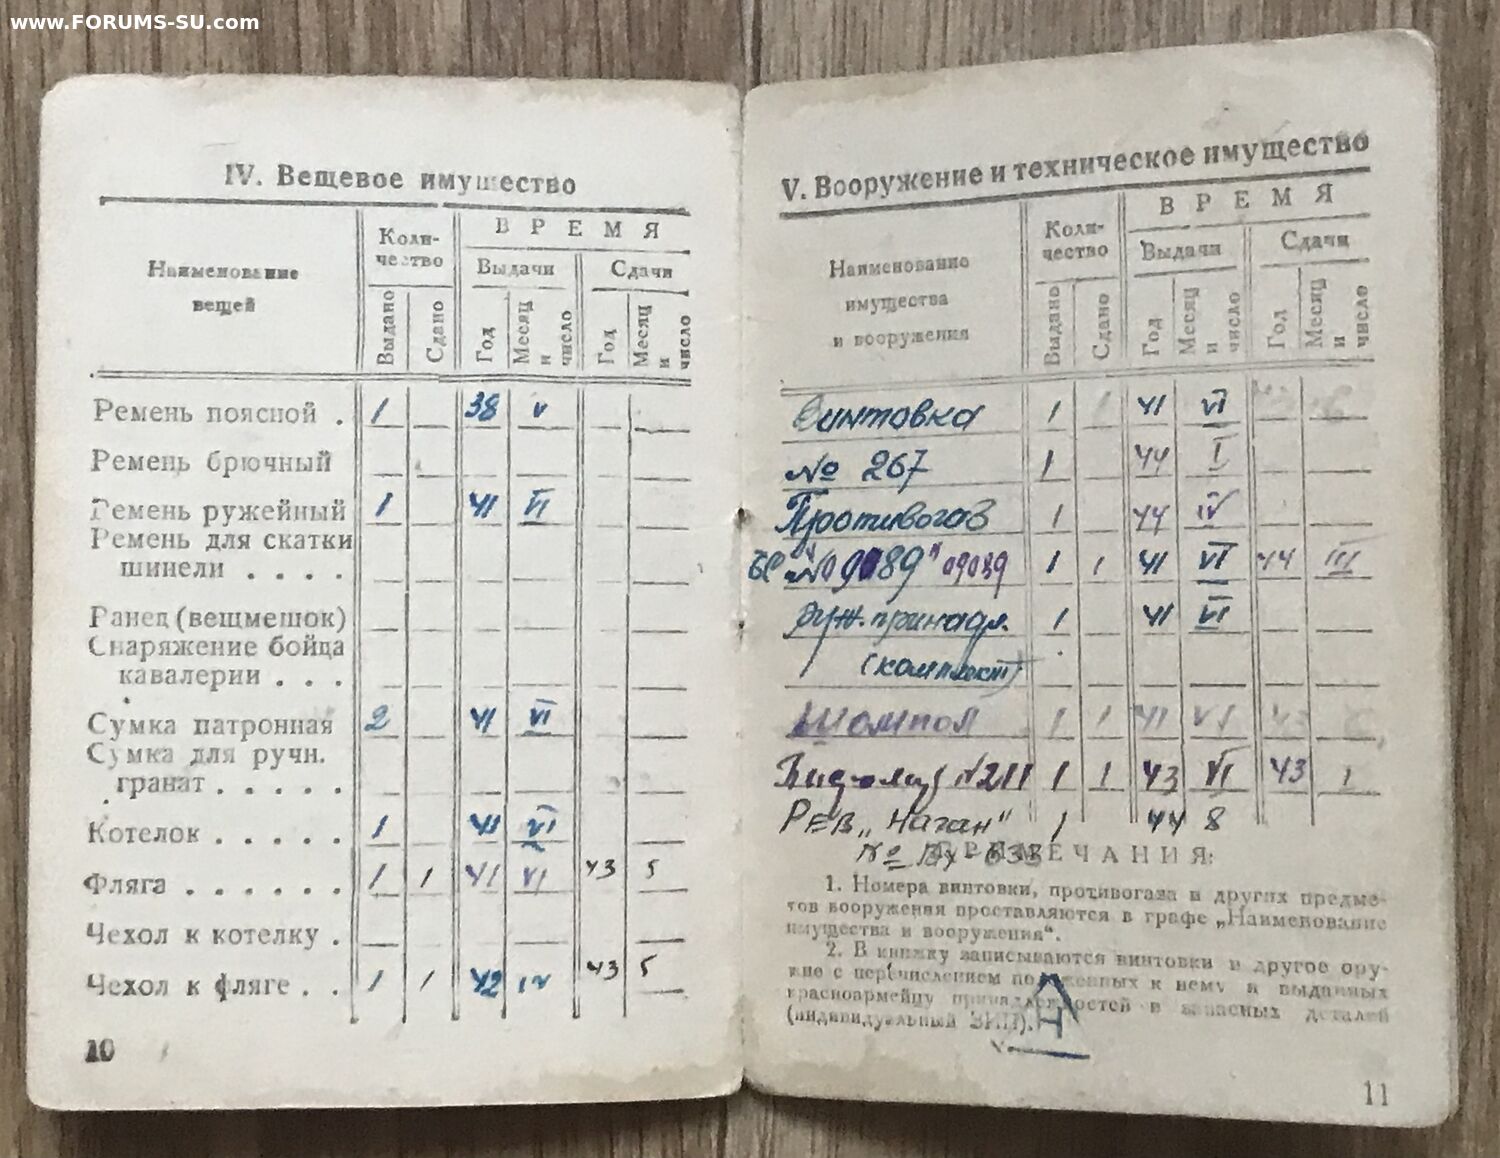 www.FORUMS-SU.com
IV. Вещевое имущество
Наименование вещей
Количество
ВРЕМЯ
Выдачи
Сдачи
Выдано
Сдано
Год
Месяц и число
Год
Месяц и число
Ремень поясной . 1 38 V
Ремень брючный
Ремень ружейный 1 41 VI
Ремень для скатки
шинели . . . .
Ранец (вещмешок)
Снаряжение бойца
кавалерии . . .
Сумка патронная 2 41 VI
Сумка для ручн.
гранат . . . . .
Котелок . . . . . 1 41 VI
Фляга . . . . . . 1 1 41 VI 43 5
Чехол к котелку .
Чехол к фляге . . 1 1 42 IV 43 5
10
V. Вооружение и техническое имущество
Наименование
имущества
и вооружения
Коли-
чество
ВРЕМЯ
Выдачи
Сдачи
Выдано
Сдано
Год
Месяц и число
Год
Месяц и число
Винтовка 1 1 41 VI
№ 267 1 44 I
Противогаз 1 44 IV
09039 1 1 41 VI 44 III
Руж. принадл. 1 41 VI
(комплект)
Шомпол 1 1 41 VI 43
№211 1 1 43 VI 43 1
Рев. „Наган" 1 44 8
№
ПРИМЕЧАНИЯ:
1. Номера винтовки, противогаза и других предме-
тов вооружения проставляются в графе „Наименование
имущества и вооружения".
2. В книжку записываются винтовки и другое ору-
жие с перечислением положенных к нему и выданных
красноармейцу принадлежностей и запасных деталей
(индивидуальный ЗИП).
11